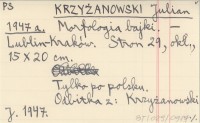 PS KRZYŻANOWSKI Julian
1947 a. Morfologia bajki. —
Lublin-Kraków. Stron 29, okł.,
15 x 20 cm.
Tylko po polsku.
Odbitka z: Krzyżanowski
J. 1947.